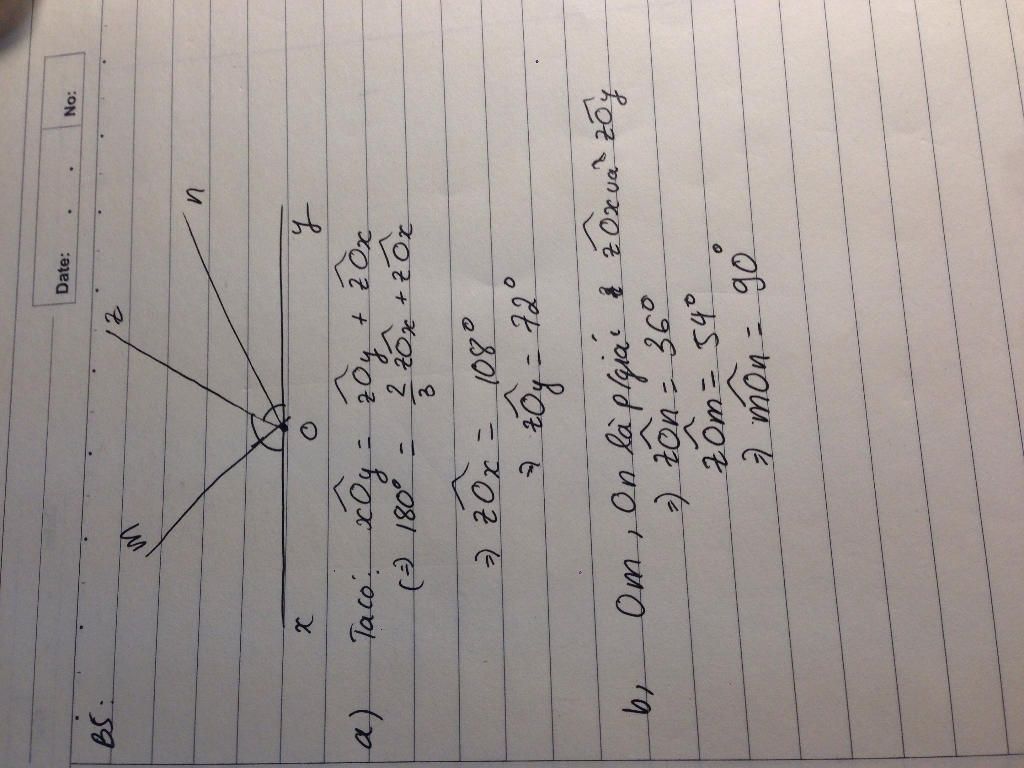 Date: No:
B5:
m
z
n
x
O
y
a) Ta có: xÔy = zÔy + zÔx
(=) 180° = 2/3 zÔx + zÔx
=) zÔx = 108°
=) zÔy = 72°
b, Om, On là p/giác zÔx và zÔy
=) zÔn = 36°
zÔm = 54°
=) mÔn = 90°